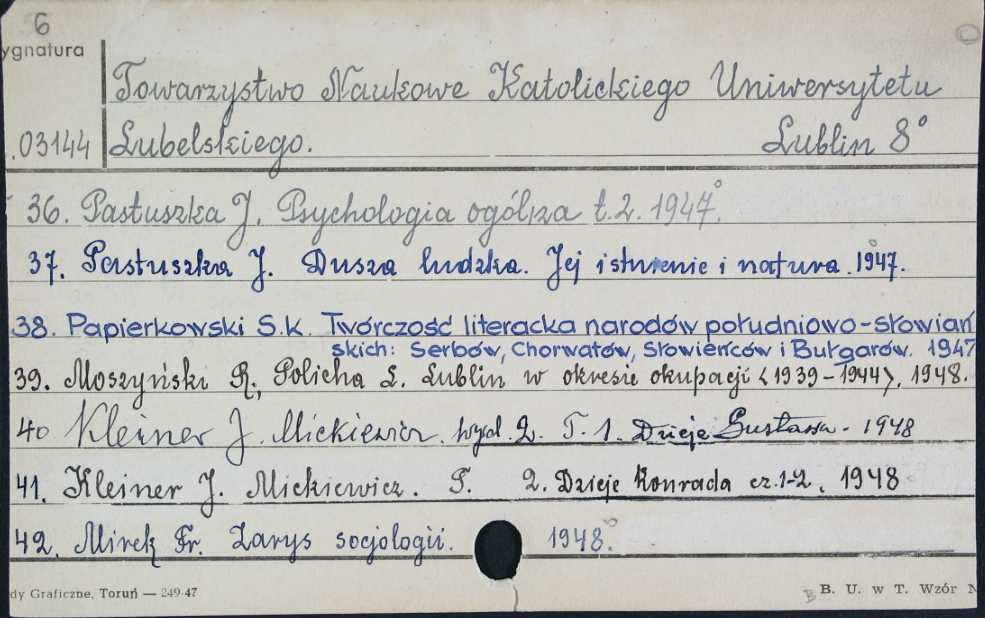 6
ygnatura
Towarzystwo Naukowe Katolickiego Uniwersytetu
.03144 Lubelskiego. Lublin 8°
36. Pastuszka J. Psychologia ogólna t. 2. 1947.
37. Pastuszka J. Dusza ludzka. Jej istnienie i natura. 1947.
38. Papierkowski S.K. Twórczość literacka narodów południowo-słowiań
skich: Serbów, Chorwatów, Słowieńców i Bułgarów. 1947
39. Moszyński R, Policha L. Lublin w okresie okupacji <1939-1944>, 1948.
40 Kleiner J. Mickiewicz. wyd. 2. T. 1. Dzieje Gustawa - 1948
41. Kleiner J. Mickiewicz. T. 2. Dzieje Konrada cz. 1-2, 1948
42. Mirek Fr. Zarys socjologii. 1948.
dy Graficzne, Toruń — 249-47 B B. U. w T. Wzór N